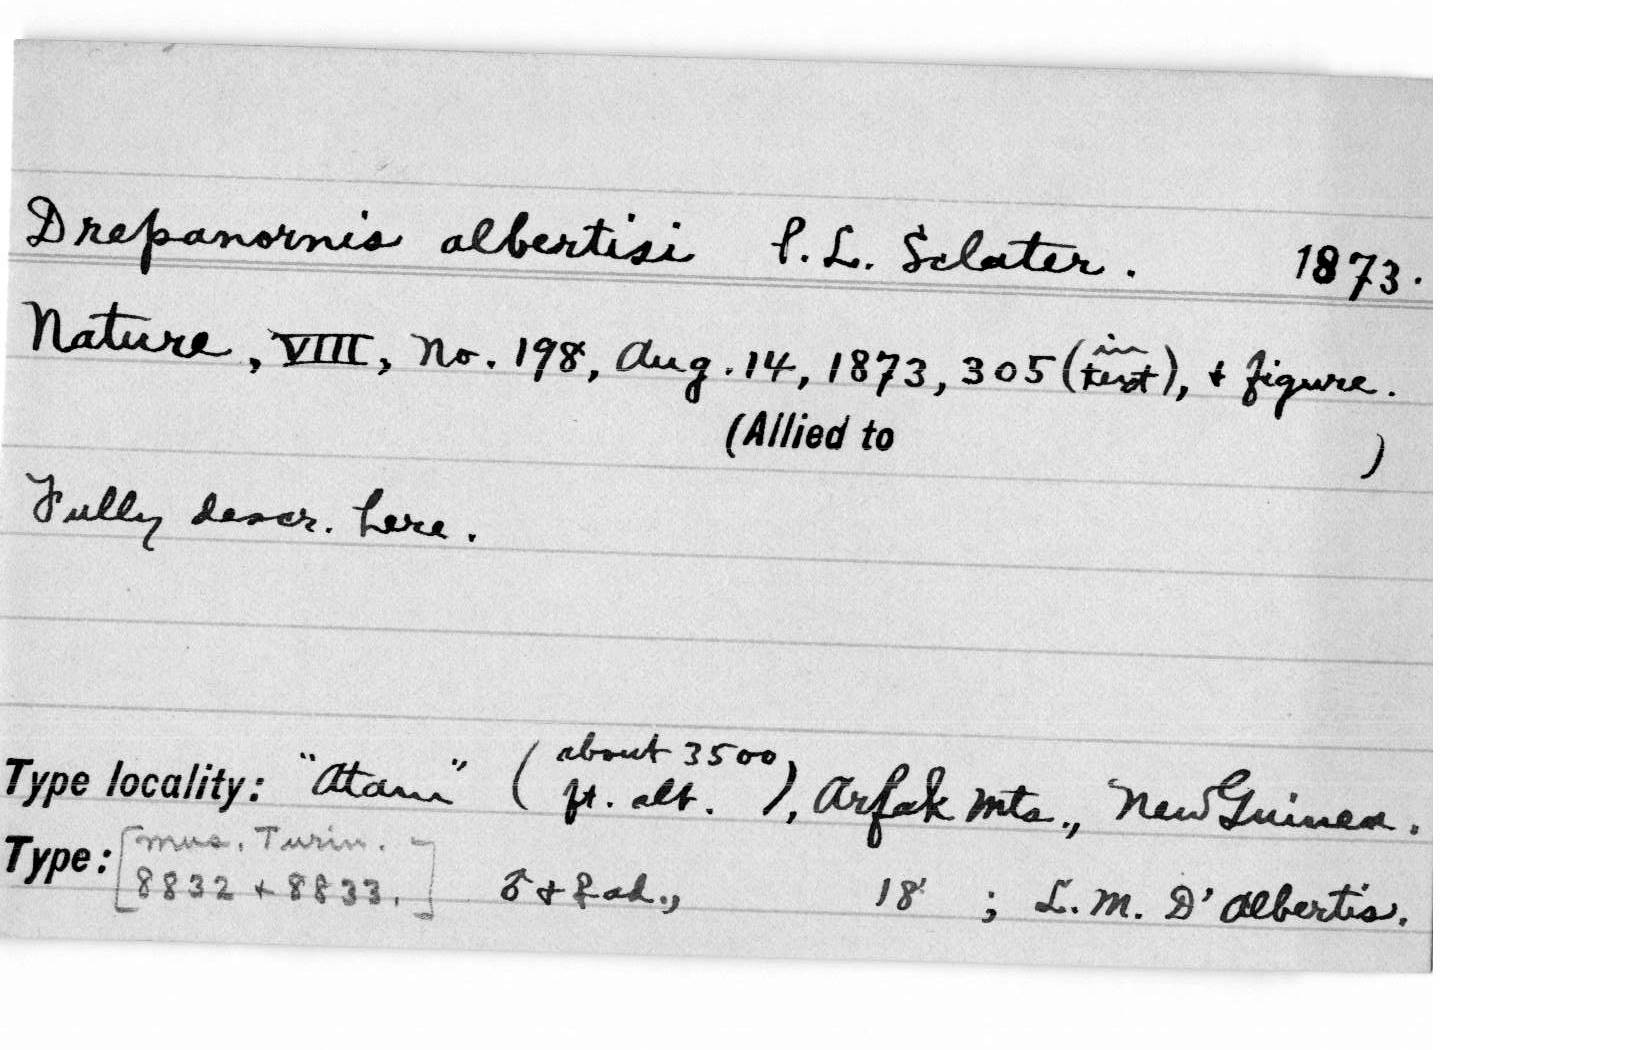 Drepanornis albertisi P. L. Sclater. 1873.
Nature, VIII, no. 198, Aug. 14, 1873, 305 (in text), + figure.
(Allied to )
Fully descr. here.
Type locality: "Atam" (about 3500 ft. alt.), Arfak Mts., New Guinea.
Type: [Mus. Turin. 8832 + 8833.] ♂ + ♀ ad., 18 ; L. M. D'Albertis.